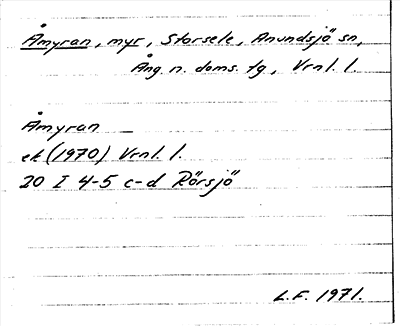 Åmyran, myr, Storsele, Anundsjö sn,
Ång. n. doms. tg, Vrnl. l.
Åmyran —
ek (1970) Vrnl. l.
20 I 4-5 c-d Rörsjö
L.F. 1971.